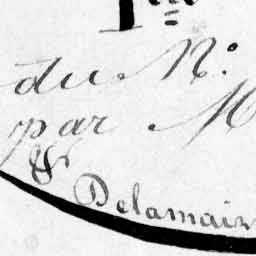 du N.º
par M
&
Delamair